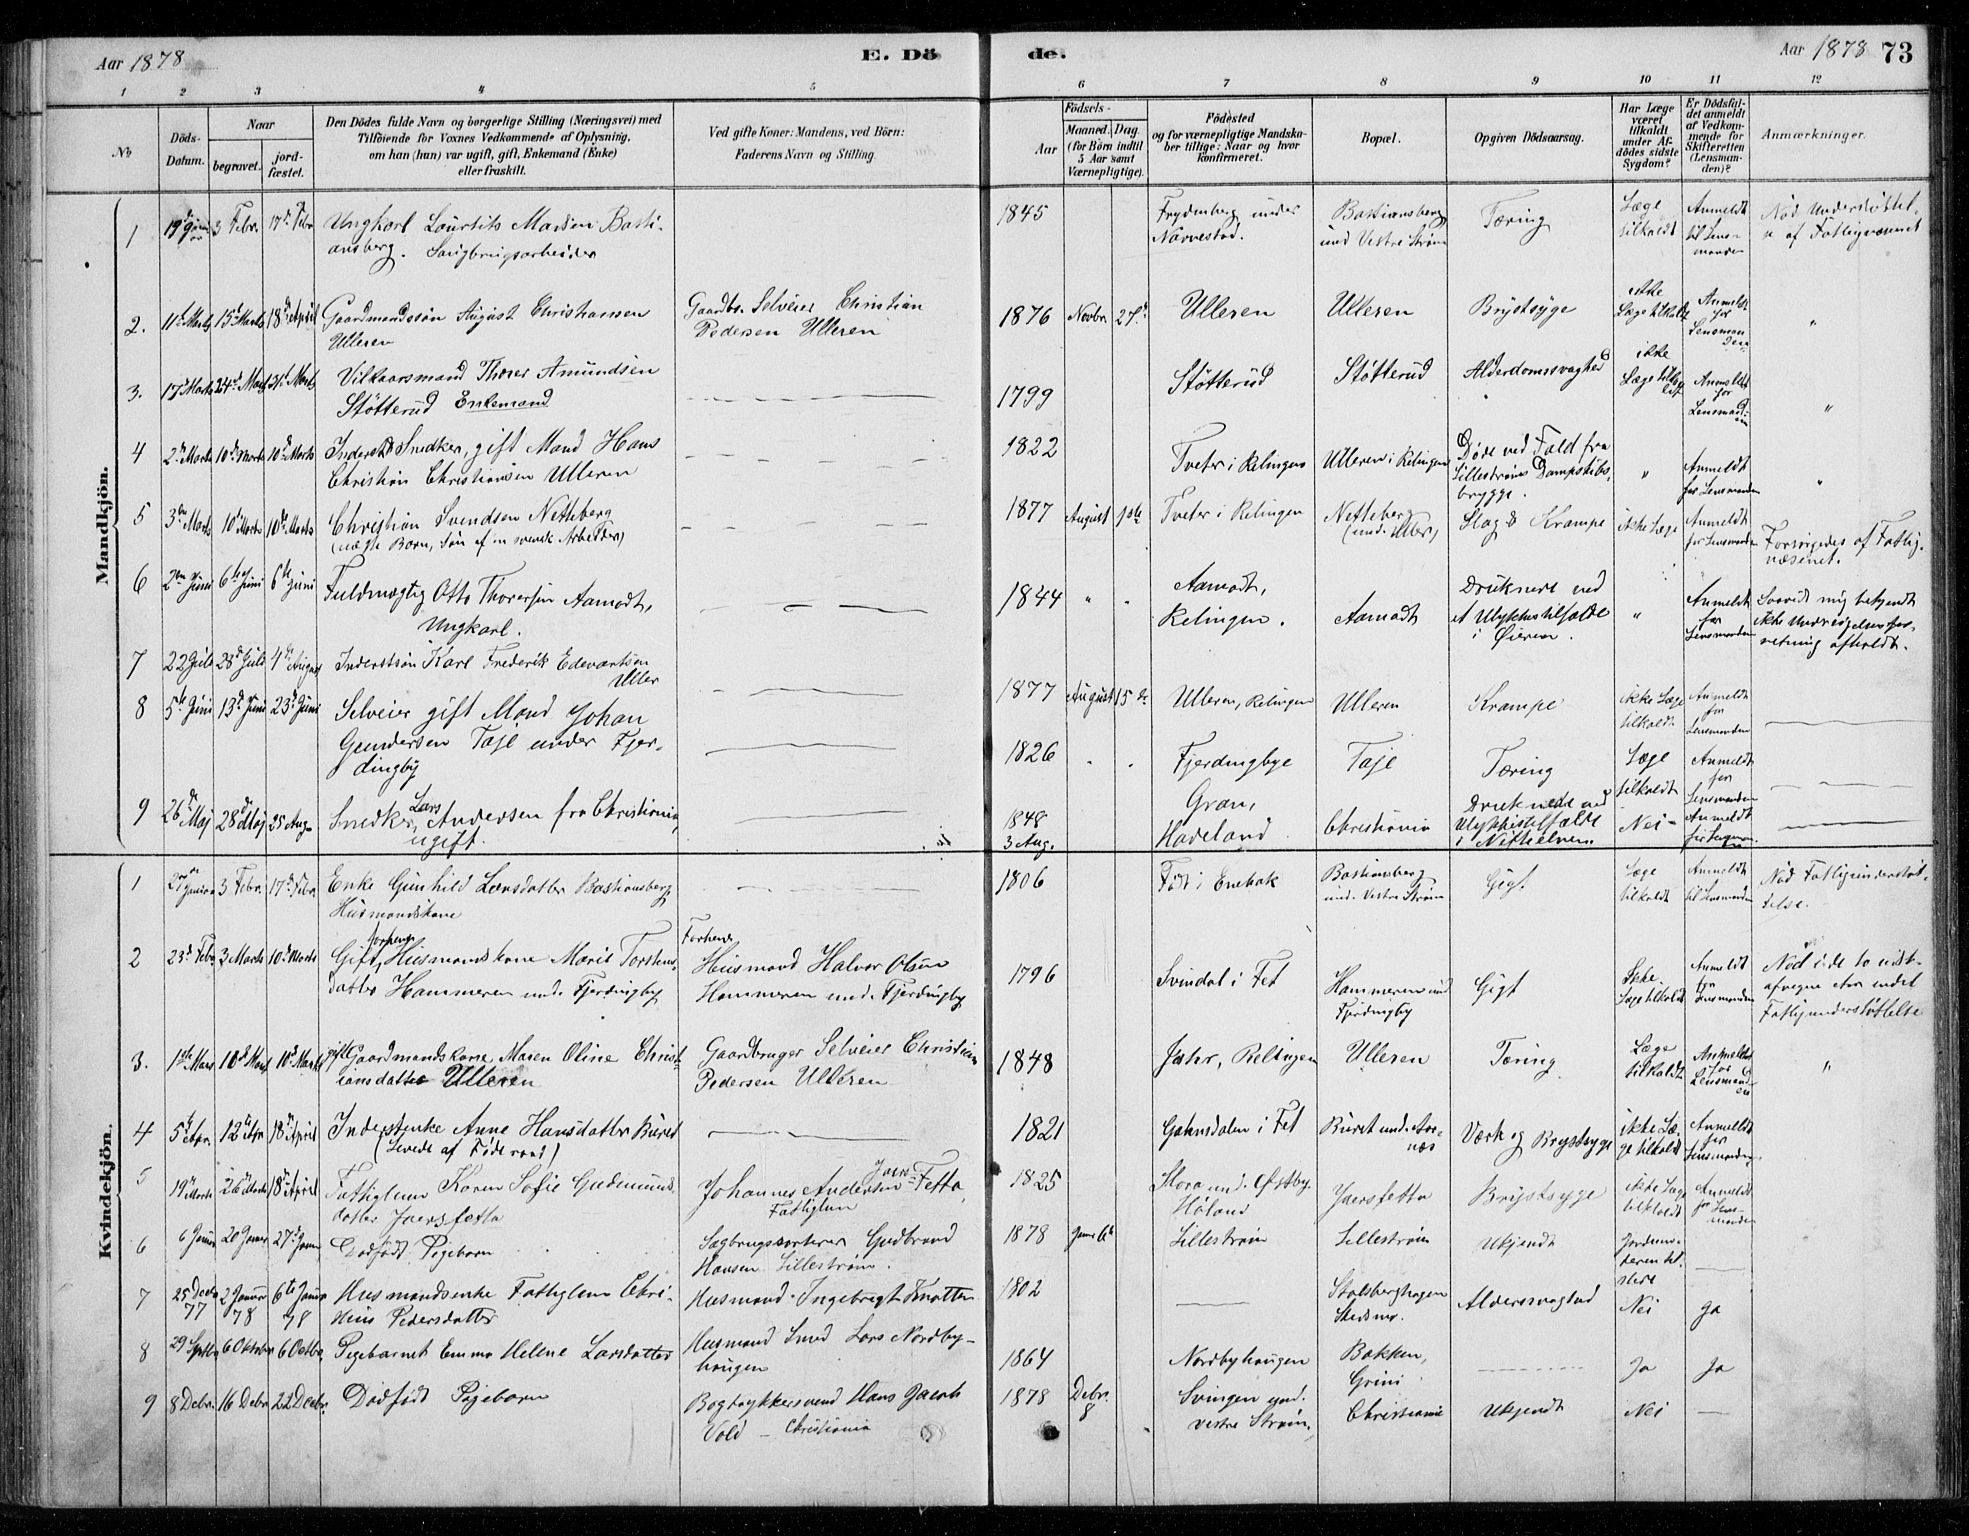 Aar 1878
E. Dö
de.
Aar 1878
73
1 2 3 4 5 6 7 8 9 10 11 12
No
Döds-Datum.
Naar
begravet.
jord-fæstet.
Den Dödes fulde Navn og borgerlige Stilling (Næringsvei) med
Tilföiende for Voxnes Vedkommende af Oplysning,
om han (hun) var ugift, gift, Enkemand (Enke)
eller fraskilt.
Ved gifte Koner: Mandens, ved Börn:
Faderens Navn og Stilling
Födsels-
Aar
Maaned. Dag
(for Börn indtil
5 Aar samt
Værnepligtige).
Födested
og for værnepligtige Mandska-
ber tillige: Naar og hvor
konfirmeret.
Bopæl.
Opgiven Dödsaarsag.
Har Læge
været
tilkaldt
under Af-
dödes sidste
Sygdom?
Er Dödsfal-
det anmeldt
af Vedkom-
mende for
Skifteretten
(Lensman-
den)?
Anmærkninger.
Mandkjön.
1 3 Febr. 17d Febr Ungkarl Lauritits Madsen Basti-
ansberg. Saugbrugsarbeider
1845 Frydenberg under
Nævestad.
Bastiansberg
und Vestre Strøm
Tæring
Læge
tilkaldt
Anmeldt
til Lens-
manden
Nød Understøttel-
se af Fattigvæsnet
2. 11t Marts 15d Marts 18d April Gaardmandssøn August Christiansen
Ulleren
Gaardbr. Selveier Christian
Pedersen Ulleren
1876 Novbr 27d Ulleren Ulleren Brystsyge
ikke
Læge tilkaldt
Anmeldt
for
Lensman-
den
"
3. 17d Marts 24d Marts 31t Marts Vilkaarsmand Thorer Amundsen
Støtterud Enkemand
1799 Støtterud Støtterud Alderdomssvaghed
ikke
Anmeldt
for
"
4 2d Marts 10d Marts 10d Marts Inderst Snedker, gift Mand Hans
Christian Christiansen Ulleren
1822 Tveter i Relingen Ulleren i Relingen
Døde ved Fald fra
Lillestrøms Dampskibs-
brygge.
" Anmeldt
for Lensmanden
"
5 3de Marts 10d Marts 10d Marts Christian Svendsen Netteberg
(uægte Barn, Søn af en svensk Arbeider)
1877 August 1ste Tveter i Relingen Netteberg Slag & Krampe ikke Læge
Anmeldt
for Lensmanden
Forsørgedes af Fattig-
væsenet.
6 2den Juni 6te Juni 6te Juni Fuldmægtig Otto Thoresen Aamodt,
Ungkarl.
1844 " " Aamodt,
Relingen. Aamodt
Druknede ved
et Ulykkestilfælde
i Øieren.
" Anmeldt
for
Lensmanden
Saavidt mig bekjendt
ikke Undersøgelsesfor-
retning afholdt.
7 22 Juli 28d Juli 4de August Inderstsøn Karl Frederik Edevartsen
Uller
1877 August 15de Ulleren, Relingen Ulleren Krampe
ikke Læge
tilkaldt
Anmeldt
for
Lensmanden
8 5te Juni 13d Juni 23d Juni Selveier gift Mand Johan
Gundersen Taje under Fjer-
dingby
1826 Fjerdingbye Taje Tæring
Læge
tilkaldt
Anmeldt
for
Lensmanden
9 26de Maj 28d Maj 25 Aug. Snedker Lars Andersen fra Christiania,
ugift.
1848
3 Aug.
Gran,
Hadeland Christiania
Druknede ved
Ulykkestilfælde
i Nitteelven.
Nei- Anmeldt
Kvindekjön.
1 3 Febr. 17d Febr. Enke Gunhild Larsdatter Bastiansberg
Husmandskone
1806 Født i Enebak
Bastiansberg
und. Vestre Strøm
Gigt
Læge
tilkaldt
Anmeldt
til Lensmanden
Nød Fattigunderstøt-
telse.
2 23d Febr 3 Marts 10d Marts Gift, forhen Husmandskone Marit Torstens-
datter Hammeren under Fjerdingby
Forhenv
Husmand Halvor Olsen
Hammeren under Fjerdingby
1796 Svindal i Fet
Hammeren und
Fjerdingby
Gigt
Ikke
Læge tilkaldt
Anmeldt
for
Lensmanden
Nød i de to sidste
Fattigunderstøttelse
3. 1ste Mars 10d Mars 10d Marts gift Gaardmandskone Maren Oline Christ-
iansdatter Ulleren
Gaardbruger Selveier Christian
Pedersen Ulleren
1848 Jahr, Relingen Ulleren Tæring
Læge
tilkaldt
Anmeldt
for
Lensmand-
en
"
4 5te Apr. 12te Apr 18d April Inderstenke Anne Hansdatter Buret
(Levede af Føderaad)
1821 Gahnsdalen i Fet Buret und. Aar-
næs
Værk og Brystsyge
ikke Læ-
ge tilkaldt
Anmeldt
for
Lensmanden
5 19d Marts 26d Marts 18d April Fattiglem Karen Sofie Gudmunds-
datter Jaersfetta
Johannes Andersen Jaers-Fetta,
Fattiglem
1825 Flora und. Østby,
Høland Jaersfetta Brystsyge
ikke Læge
tilkaldt
Anmeldt
for Lens-
manden
6 6 Januar 20 Januar 27d Janu Dødfødt Pigebarn
Sagbrugssorterer Gudbrand
Hansen Lillestrøm.
1878 Janu 6te Lillestrøm Lillestrøm Ukjendt
Jordemo-
deren til-
stede
7 25 Decbr
77
2 Januar
78
6te Janur
78
Husmandsenke Fattiglem Chri-
stine Pedersdatter
Husmand Ingebregt Knatten
1802 Stalsberghagen
Skedsmo.
Alderssvaghed Nei Ja
8 29 Septbr 6 Oktober 6 Octbr Pigebarnet Emma Helene Larsdatter
Husmand Smed Lars Nordby-
haugen
1864 Nordbyhaugen
Bakken,
Grini
Ja Ja
9 8 Debr. 16 Debr 22 Decbr. Dødfødt Pigebarn
Bogtrykkersvend Hans Jacob
Vold - Christiania
1878 Debr.
8
Svingen und.
vestre Strøm.
Christiania Ukjendt Nei